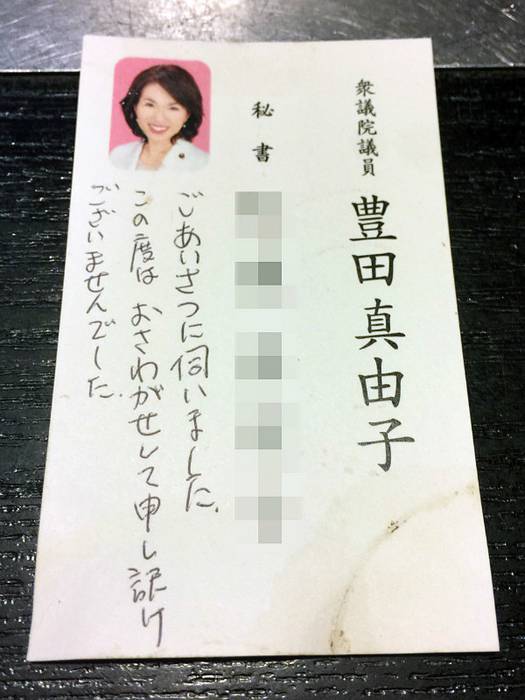 衆議院議員 豊田真由子
秘書
ごあいさつに伺いました。
この度は おさわがせして申し訳け
ございませんでした。